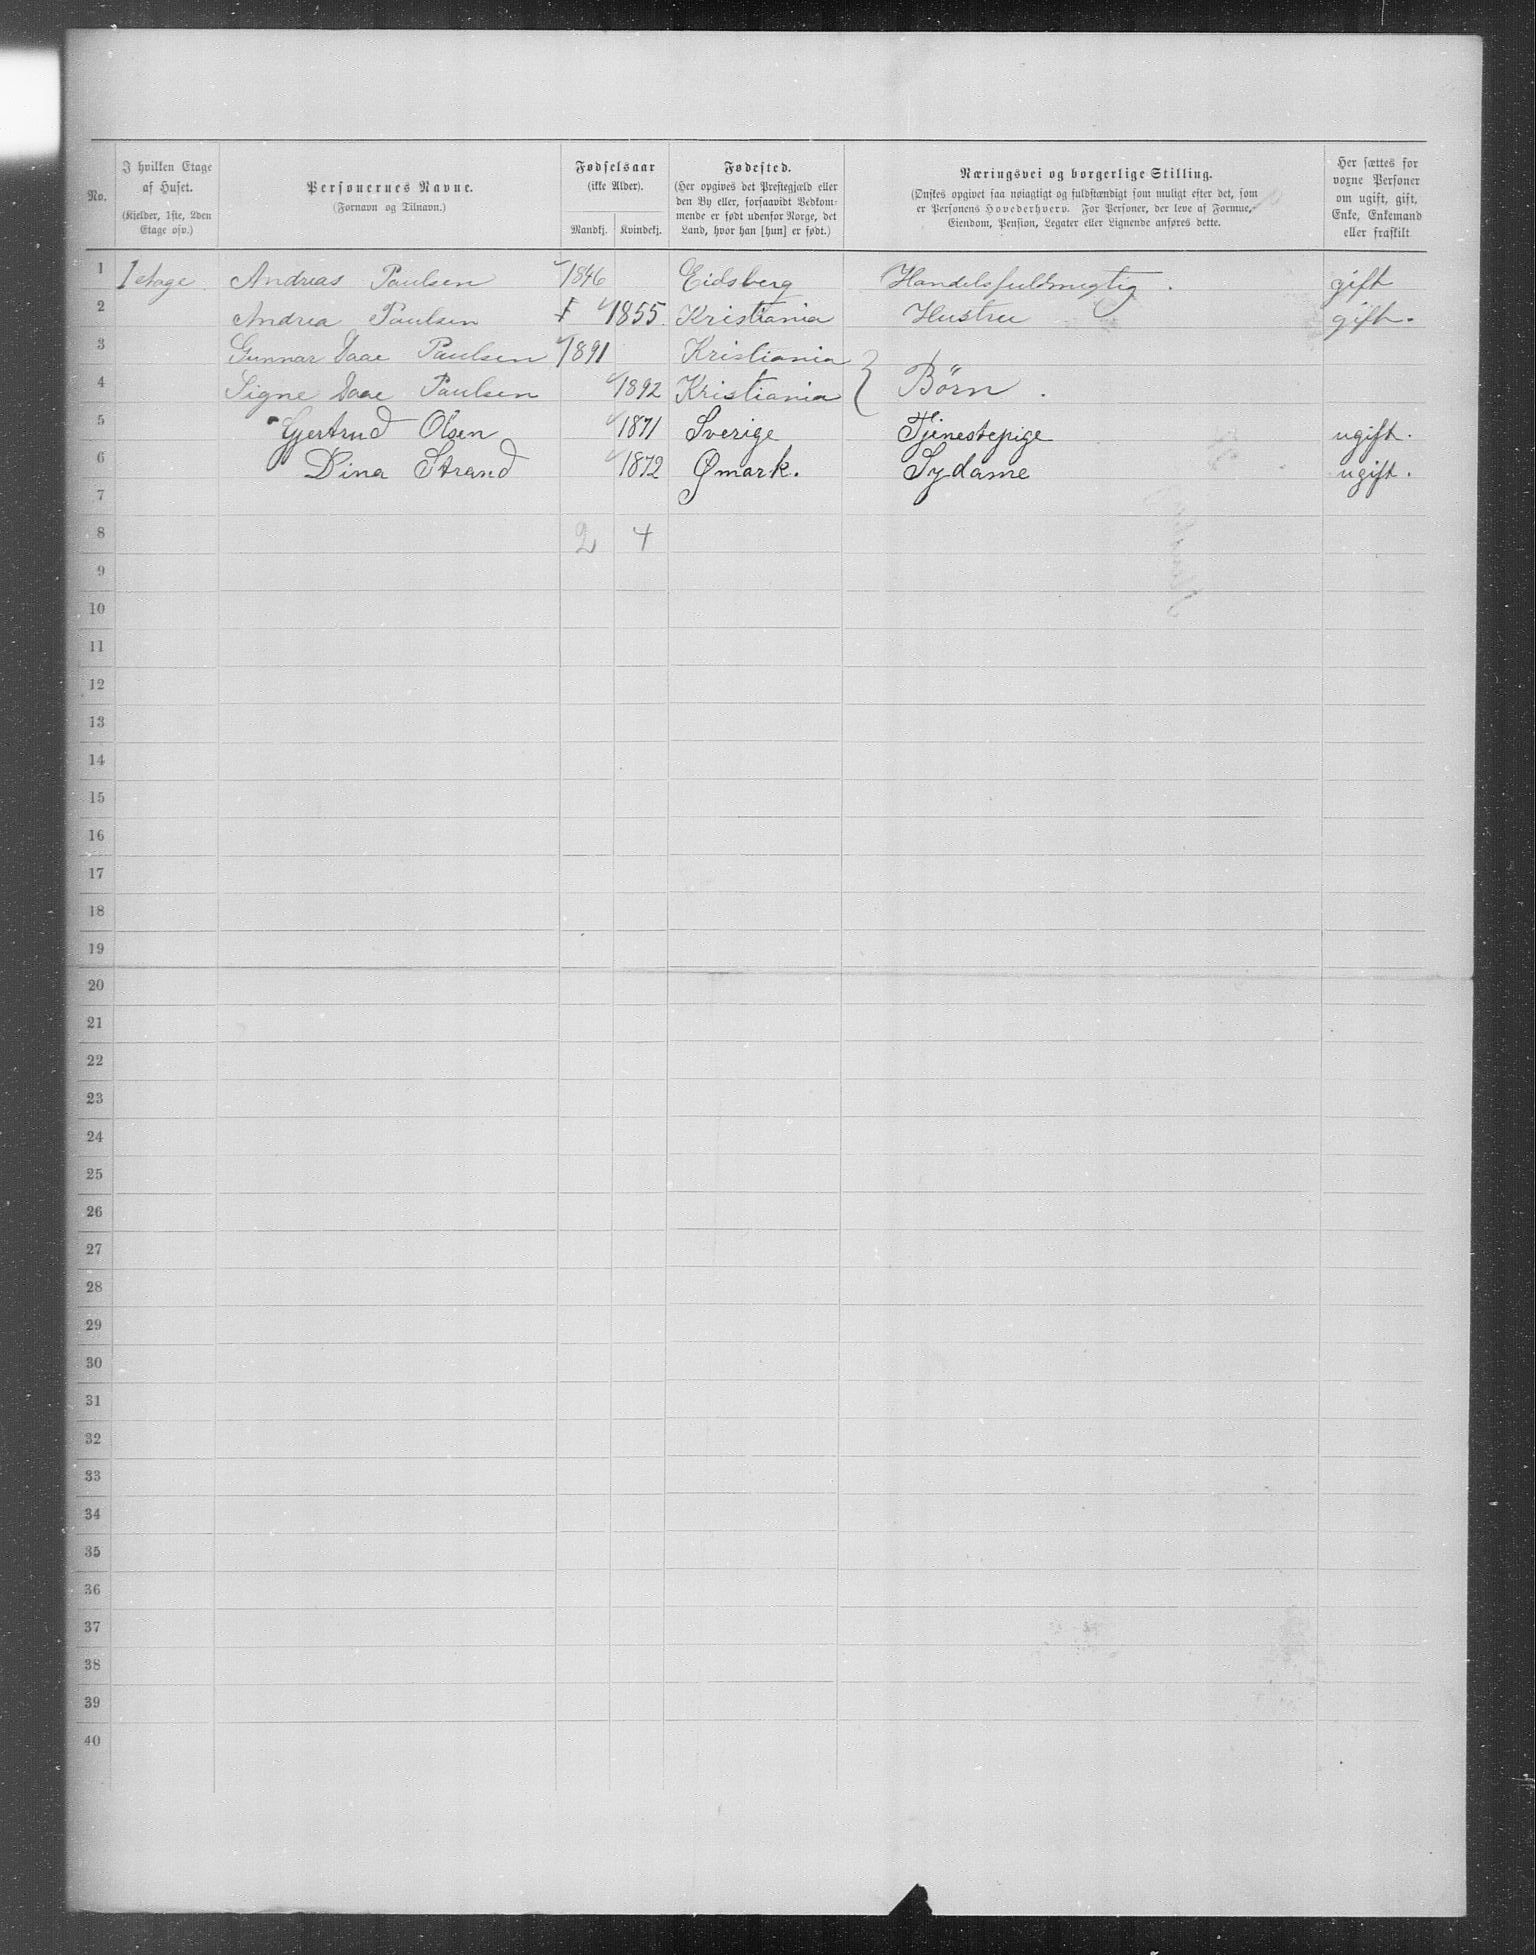 No. | I hvilken Etage af Huset. (Kjelder, 1ste, 2den Etage osv.) | Personernes Navne. (Fornavn og Tilnavn.) | Fødselsaar (ikke Alder). Mandkj. | Kvindekj. | Fødested. (Her opgives det Prestegjæld eller den By eller, forsaavidt Vedkommende er født udenfor Norge, det Land, hvor han [hun] er født.) | Næringsvei og borgerlige Stilling. (Ønskes opgivet saa nøiagtigt og fuldstændigt som muligt efter det, som er Personens Hovederhverv. For Personer, der leve af Formue, Eiendom, Pension, Legater eller Lignende anføres dette. | Her sættes for voxne Personer om ugift, gift, Enke, Enkemand eller fraskilt
1 | 1 etage | Andreas Paulsen | 1846 | | Eidsberg | Handelsfuldmægtig. | gift
2 | | Andrea Paulsen | | 1855. | Kristiania | Hustru | gift.
3 | | Gunnar Daae Paulsen | 1891 | | Kristiania | } Børn.
4 | | Signe Daae Paulsen | | 1892 | Kristiania
5 | | Gjertrud Olsen | | 1871 | Sverige | Tjenestepige | ugift.
6 | | Dina Strand | | 1872 | Ømark. | Sydame | ugift.
7
8 | | | 2 | 4
9
10
11
12
13
14
15
16
17
18
19
20
21
22
23
24
25
26
27
28
29
30
31
32
33
34
35
36
37
38
39
40